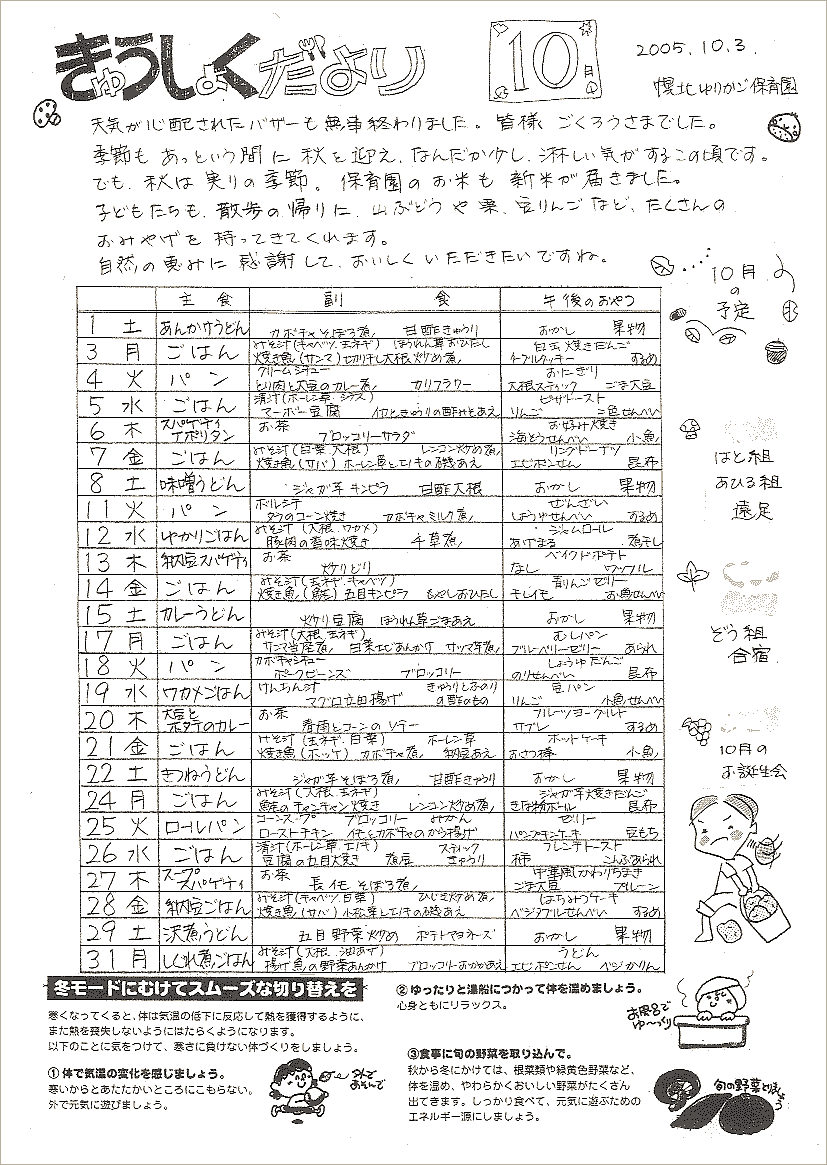 きゅうしょくだより
10月
2005.10.3.
幌北ゆりかご保育園
天気が心配されたバザーも無事終わりました。皆様ごくろうさまでした。
季節もあっという間に秋を迎え、なんだか少し、淋しい気がするこの頃です。
でも、秋は実りの季節。保育園のお米も新米が届きました。
子どもたちも、散歩の帰りに、山ぶどうや栗、豆りんごなど、たくさんの
おみやげを持ってきてくれます。
自然の恵みに感謝して、おいしくいただきたいですね。
主食 副食 午後のおやつ
1 土 あんかけうどん カボチャそぼろ煮 甘酢きゅうり おかし 果物
3 月 ごはん みそ汁(キャベツ、玉ネギ) ほうれん草おひたし 白玉焼きだんご
焼き魚(サンマ) 切り干し大根炒め煮 するめ
4 火 パン クリームシチュー おにぎり
とり肉と大豆のカレー煮 カリフラワー 大根スティック ごま大豆
5 水 ごはん 清汁(ホーレン草、シラス) ピザトースト
マーボー豆腐 りんご 二色せんべい
6 木 スパゲティナポリタン お茶 お好み焼き
ブロッコリーサラダ 小魚
7 金 ごはん みそ汁(白菜、大根) レンコン炒め煮 リングドーナツ
焼き魚(サバ) ホーレン草とエノキの磯あえ エビポンせん 昆布
8 土 味噌うどん ジャガ芋キンピラ 甘酢大根 おかし 果物
11 火 パン ボルシチ ぜんざい
タラのコーン焼き カボチャミルク煮 しょうゆせんべい するめ
12 水 ゆかりごはん みそ汁(大根、ワカメ) ジャムロール
豚肉の香味焼き 千草煮 あげまる
13 木 納豆スパゲティ お茶 ベイクドポテト
炒り鶏 なし ワッフル
14 金 ごはん みそ汁(玉ネギ、キャベツ) 青りんごゼリー
焼き魚(鮭) 五目キンピラ もやしおひたし お魚せんべい
15 土 カレーうどん 炒り豆腐 ほうれん草ごまあえ おかし 果物
17 月 ごはん みそ汁(大根、玉ネギ) むしパン
サンマ 白菜エビあんかけ サツマ芋煮 ブルーベリーゼリー あられ
18 火 パン カボチャシチュー しょうゆだんご
ポークビーンズ ブロッコリー のりせんべい 昆布
19 水 ワカメごはん けんちん汁 豆パン
マグロ立田揚げ きゅうりとふのりの酢のもの りんご 小魚せんべい
20 木 大豆とポテトのカレー お茶 フルーツヨーグルト
春雨とコーンのソテー サブレ するめ
21 金 ごはん みそ汁(玉ネギ、白菜) ホーレン草 ホットケーキ
焼き魚(ホッケ) カボチャ煮 納豆あえ おさつ棒 小魚
22 土 きつねうどん ジャガ芋そぼろ煮 甘酢きゅうり おかし 果物
24 月 ごはん みそ汁(大根、玉ネギ) ジャガ芋焼きだんご
鮭のチャンチャン焼き レンコン炒め煮 きな粉ボール 昆布
25 火 ロールパン コーンスープ ブロッコリー みかん ゼリー
ローストチキン パンプキンケーキ 豆もち
26 水 ごはん 清汁(ホーレン草、エノキ) スティックきゅうり フレンチトースト
豆腐の五目焼き 柿 こんぶあられ
27 木 スープスパゲティ お茶 中華風かわりちまき
長芋そぼろ煮 ごま大豆 プルーン
28 金 納豆ごはん みそ汁(キャベツ、白菜) ひじき炒め煮 はちみつケーキ
焼き魚(サバ) 小松菜とエノキの磯あえ ベジタブルせんべい するめ
29 土 沢煮うどん 五目野菜炒め ポテトマヨネーズ おかし 果物
31 月 しぐれ煮ごはん みそ汁(大根、油あげ) うどん
揚げ魚の野菜あんかけ ブロッコリーおかかあえ エビポンせん ベジかりん
10月の予定
はと組
あひる組
遠足
ぞう組
合宿
10月の
お誕生会
冬モードにむけてスムーズな切り替えを
寒くなってくると、体は気温の低下に反応して熱を獲得するように、
また熱を喪失しないようにはたらくようになります。
以下のことに気をつけて、寒さに負けない体づくりをしましょう。
①体で気温の変化を感じましょう。
寒いからとあたたかいところにこもらない。
外で元気に遊びましょう。
外であそんで
②ゆったりと湯船につかって体を温めましょう。
心身ともにリラックス。
お風呂でゆ〜っくり
③食事に旬の野菜を取り込んで。
秋から冬にかけては、根菜類や緑黄色野菜など、
体を温め、やわらかくおいしい野菜がたくさん
出てきます。しっかり食べて、元気に遊ぶための
エネルギー源にしましょう。
旬の野菜とりましょう